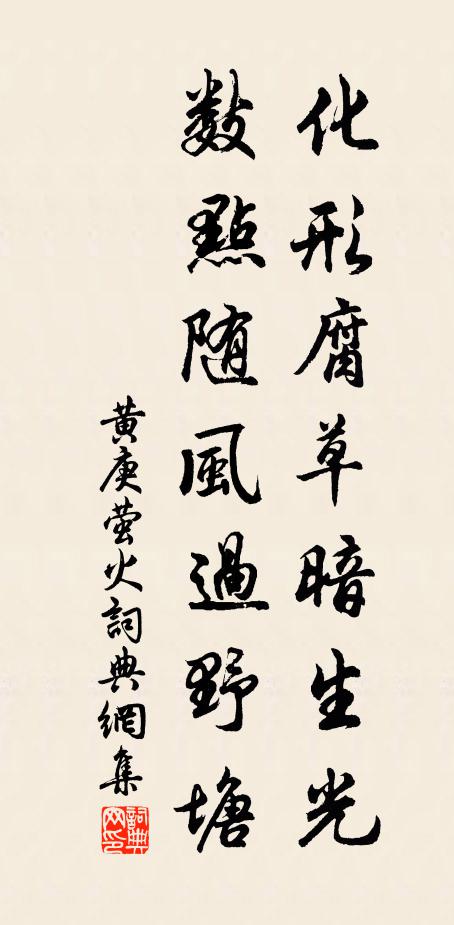 化形腐草暗生光
數點随風過野塘
黄庚萤火詞典網集
詞典網印